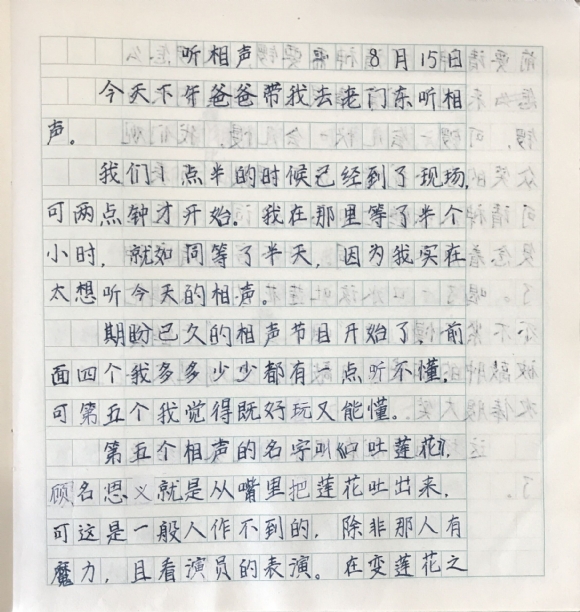 听相声 8月15日
今天下午爸爸带我去老门东听相
声。
我们1点半的时候已经到了现场,
可两点钟才开始。我在那里等了半个
小时,就如同等了半天,因为我实在
太想听今天的相声。
期盼已久的相声节目开始了,前
面四个我多多少少都有一点听不懂,
可第五个我觉得既好玩又能懂。
第五个相声的名字叫《口吐莲花》,
顾名思义就是从嘴里把莲花吐出来,
可这是一般人作不到的,除非那人有
魔力,且看演员的表演。在变莲花之